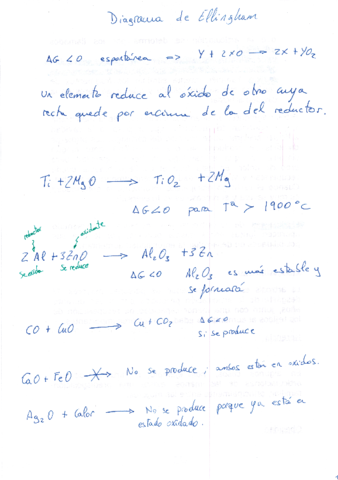 Diagrama de Ellingham
ΔG < 0 espontánea => Y + 2XO → 2X + YO₂
Un elemento reduce al óxido de otro cuya
recta quede por encima de la del reductor.
Ti + 2MgO → TiO₂ + 2Mg
ΔG<0 para Tª > 1900°C
reductor oxidante
2 Al + 3ZnO → Al₂O₃ + 3Zn
se oxida se reduce ΔG<0 Al₂O₃ es más estable y
se formará
CO + CuO → Cu + CO₂ ΔG<0
si se produce
CaO + FeO → No se produce; ambos están en óxidos.
Ag₂O + Calor → No se produce porque ya está en
estado oxidado.